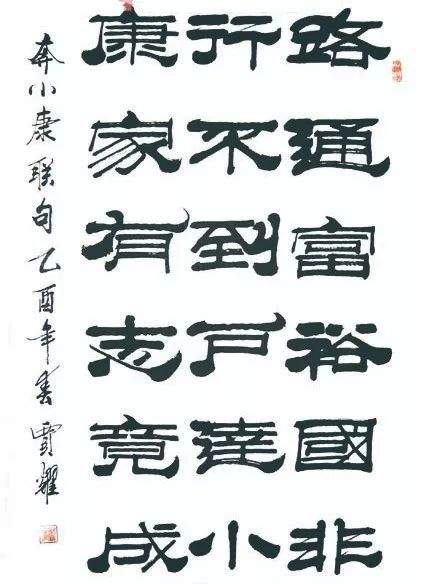 路通富裕國非
行不到戶達小
康家有志竟成
奔小康联句乙酉年春耀